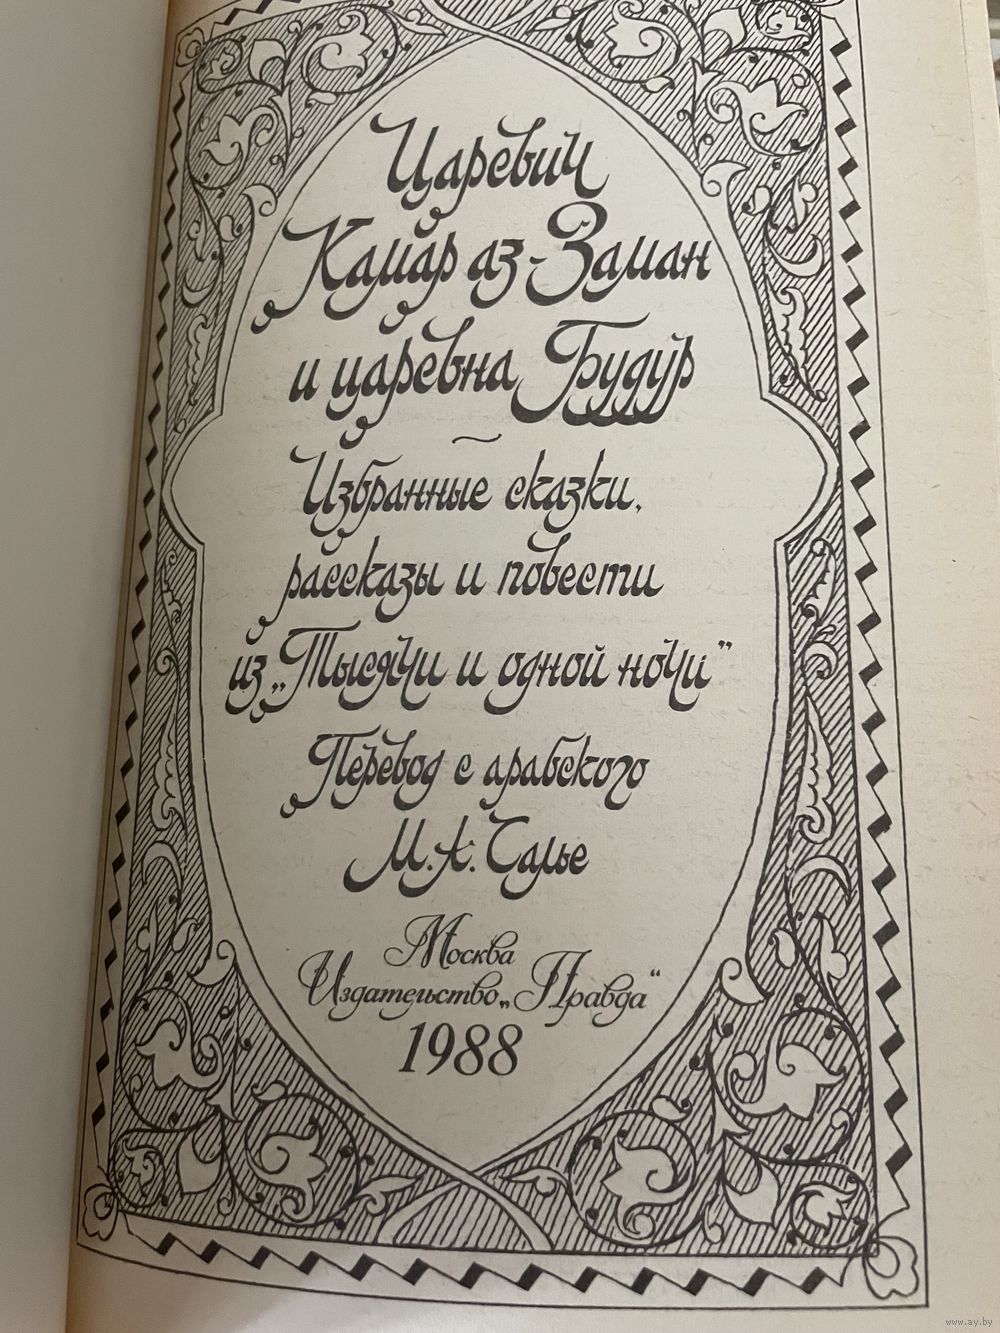 Царевич
Камар аз-Заман
и царевна Будур
Избранные сказки,
рассказы и повести
из „Тысячи и одной ночи"
Перевод с арабского
М. А. Салье
Москва
Издательство „Правда"
1988
www.ay.by